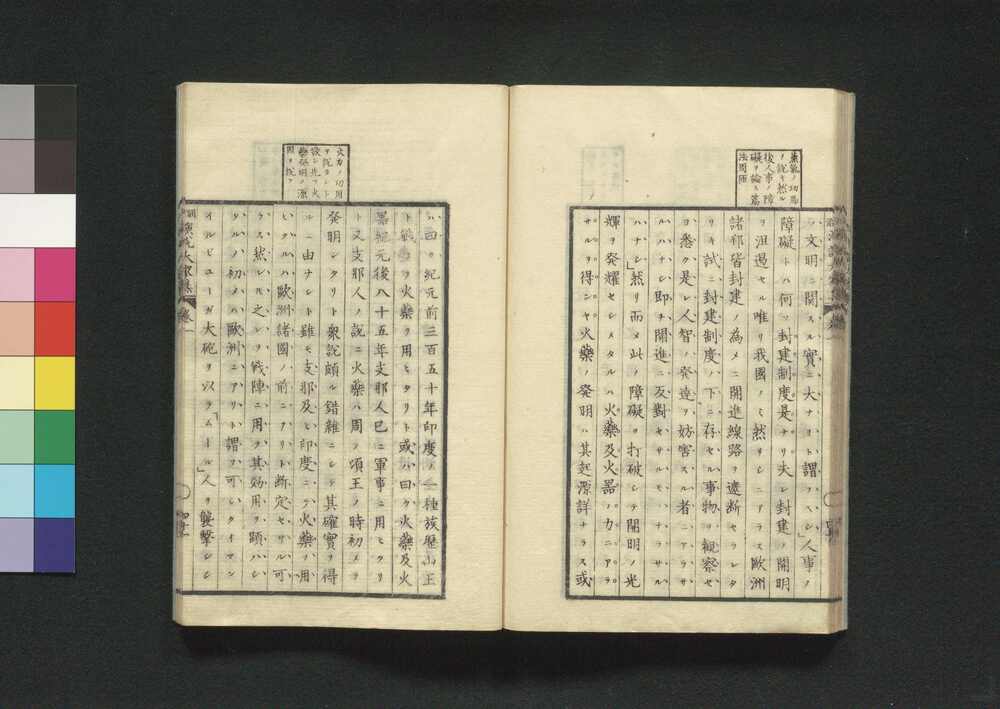 ノ文明ニ関スル實ニ大ナリト謂フヘシ」人事ノ
障礙トハ何ソ封建制度是ナリ夫レ封建ノ開明
ヲ沮遏セル唯リ我國ノミ然リシニアラス歐洲
諸邦皆封建ノ為メニ開進線路ヲ遮断セラレタ
リキ試ニ封建制度ノ下ニ存セル事物ヲ観察セ
ヨ悉ク是レ人智ノ発達ヲ妨害スル者ニアラサ
ルハナシ即チ開進ニ反對セサルモノナラサル
ハナシ」然リ而メ此ノ障礙ヲ打破シテ開明ノ光
輝ヲ発耀セシメタルハ火藥及火器ノ力ニアラ
サルヲ得ンヤ火藥ノ発明ハ其起源詳ナラス或
ハ曰ク紀元前三百五十年印度ノ一種族歴山王
ト戰フヲ火藥ヲ用ヒタリト或ハ曰ク火藥及火
器紀元後八十五年支那人已ニ軍事ニ用ヒタリ
ト又支那人ノ説ニ火藥ハ周ノ頃王ノ時初メテ
発明シタリト衆説頗ル錯雜ニシテ其確實ヲ得
ルニ由ナシト雖モ支那及ヒ印度ニテ火藥ヲ用
ヒタルハ歐洲諸國ノ前ニアリト断定セサル可
ラス然レ之レヲ戰陣ニ用ヲ其効用ヲ顕ハシ
タルノ初メハ歐洲ニアリト謂フ可シクイマン
オルビユーガ大砲ヲ以ラ「ムール」人ヲ襲撃シシ
火力ノ功用
ヲ説カント
欲シ先ツ火
藥発明ノ源
因ヲ説ク